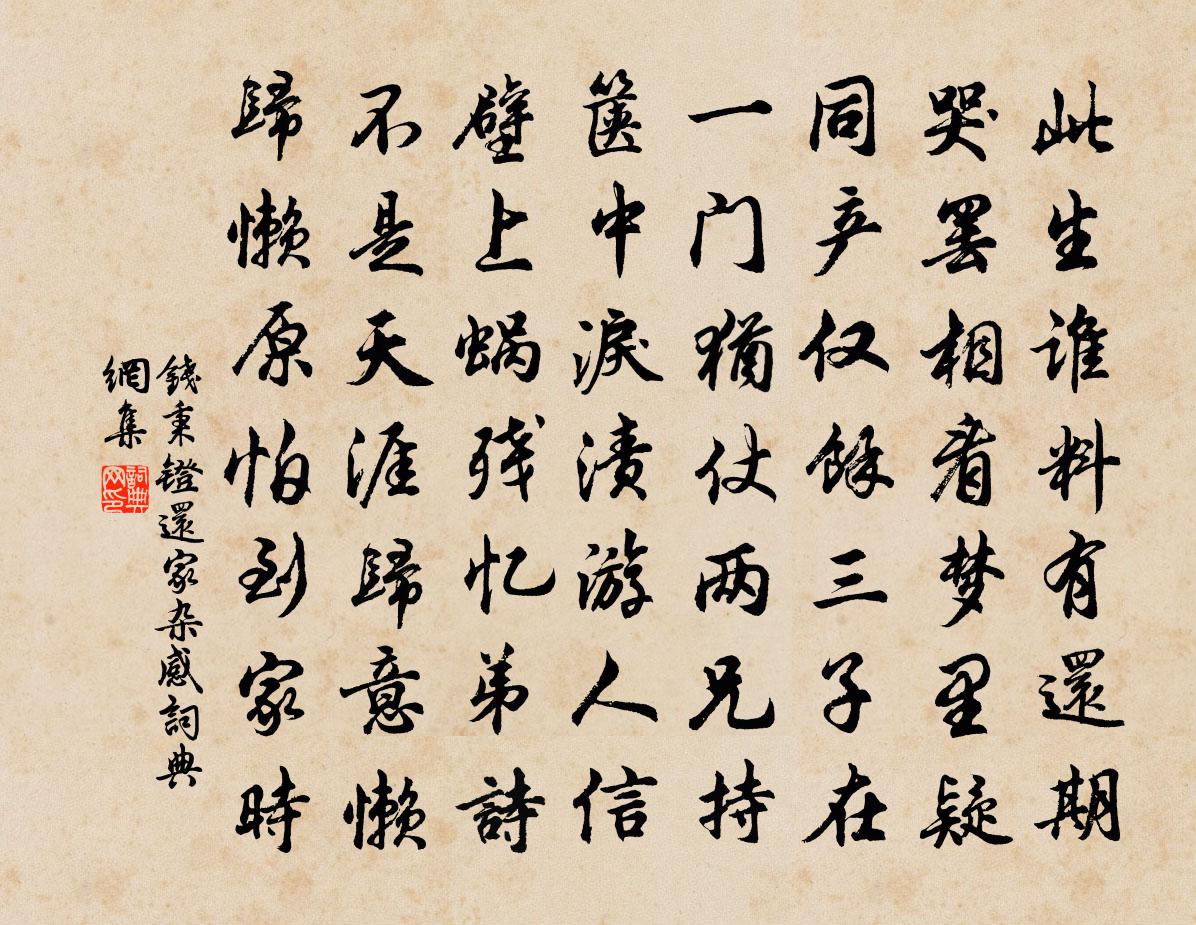 此生谁料有還期
哭罢相看梦里疑
同产仅餘三子在
一门猶仗两兄持
箧中淚渍游人信
壁上蜗残忆弟詩
不是天涯歸意懒
歸懒原怕到家時
錢秉鐙還家杂感詞典
網集
詞典
网印